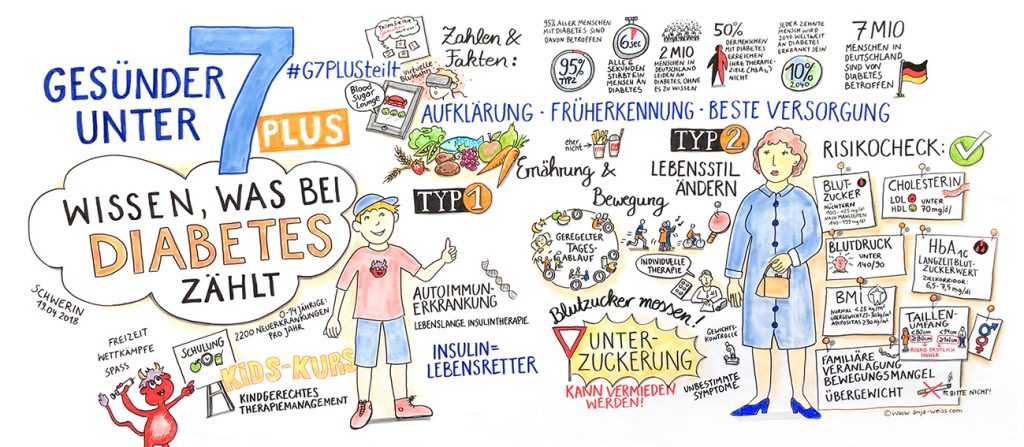 GESÜNDER
UNTER
7
PLUS
#G7PLUSteilt
WISSEN, WAS BEI
DIABETES
ZÄHLT
SCHWERIN
19.04.2018
Virtuelle
Blood
Sugar
Lounge
Zahlen &
Fakten:
95% ALLER MENSCHEN
MIT DIABETES SIND
DAVON BETROFFEN
95%
TYP2
6sec
ALLE 6
SEKUNDEN
STIRBT EIN
MENSCH AN
DIABETES
2 MIO
MENSCHEN IN
DEUTSCHLAND
LEIDEN AN
DIABETES, OHNE
ES ZU WISSEN
50%
DER MENSCHEN
MIT DIABETES
ERREICHEN
IHRE THERAPIE-
ZIELE (HbA1c)
NICHT
JEDER ZEHNTE
MENSCH WIRD
2040 WELTWEIT
AN DIABETES
ERKRANKT SEIN
10%
2040
7 MIO
MENSCHEN IN
DEUTSCHLAND
SIND VON
DIABETES
BETROFFEN
AUFKLÄRUNG · FRÜHERKENNUNG · BESTE VERSORGUNG
TYP 1
AUTOIMMUN-
ERKRANKUNG
LEBENSLANGE INSULINTHERAPIE
INSULIN=
LEBENSRETTER
0-14 JÄHRIGE:
2200 NEUERKRANKUNGEN
PRO JAHR
FREIZEIT
WETTKÄMPFE
SPASS
SCHULUNG
KiDS-KURS
KINDGERECHTES
THERAPIEMANAGEMENT
eher
nicht
Ernährung &
Bewegung
TYP 2
LEBENSSTIL
ÄNDERN
GEREGELTER
TAGES-
ABLAUF
INDIVIDUELLE
THERAPIE
Blutzucker messen!
UNTER-
ZUCKERUNG
KANN VERMIEDEN
WERDEN!
GEWICHTS-
KONTROLLE
UNBESTIMMTE
SYMPTOME
RISIKOCHECK:
BLUT-
ZUCKER
NÜCHTERN
100-125 mg/dl
NACH MAHLZEITEN
140-199 mg/dl
CHOLESTERIN
LDL
HDL
UNTER
70 mg/dl
BLUTDRUCK
UNTER
140/90
HbA1c
LANGZEITBLUT-
ZUCKERWERT
ZIELKORRIDOR:
6,5-7,5 mg/dl
BMI
NORMAL <25 kg/m²
ÜBERGEWICHT 25-30 kg/m²
ADIPOSITAS ≥30 kg/m²
TAILLEN-
UMFANG
<80cm
≥80cm
<94cm
RISIKO DEUTLICH
HÖHER
FAMILIÄRE
VERANLAGUNG
BEWEGUNGSMANGEL
ÜBERGEWICHT
BITTE NICHT!
©www.anja-weiss.com